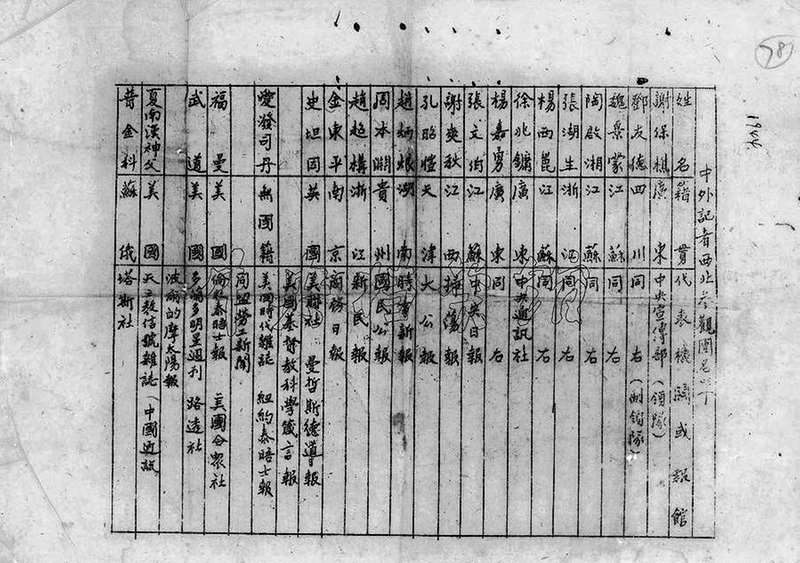 78
1944
中外記者西北參觀團名單
姓名 籍貫 代表機關或報館
謝保樵 廣東 中央宣傳部(領隊)
鄧友德 四川 同右(副領隊)
魏景蒙 江蘇 同右
陶啟湘 江蘇 同右
張湖生 浙江 同右
楊西崑 江蘇 同右
徐兆鏞 廣東 中央通訊社
楊嘉勇 廣東 同右
張文伯 江蘇 中央日報
謝爽秋 江西 掃蕩報
孔昭愷 天津 大公報
趙炳烺 湖南 時事新報
周本淵 貴州 國民公報
趙超構 浙江 新民報
金東平 南京 商務日報
史坦因 英國 美聯社 曼哲斯德導報
美國基督教科學箴言報
愛潑司丹 無國籍 美國時代雜誌 紐約泰晤士報
同盟勞工新聞
福曼 美國 倫敦泰晤士報 美國合眾社
武道 美國 多倫多明星週刊 路透社
波爾的摩太陽報
夏南漢神父 美國 天主教信號雜誌(中國通訊)
普金科 蘇俄 塔斯社